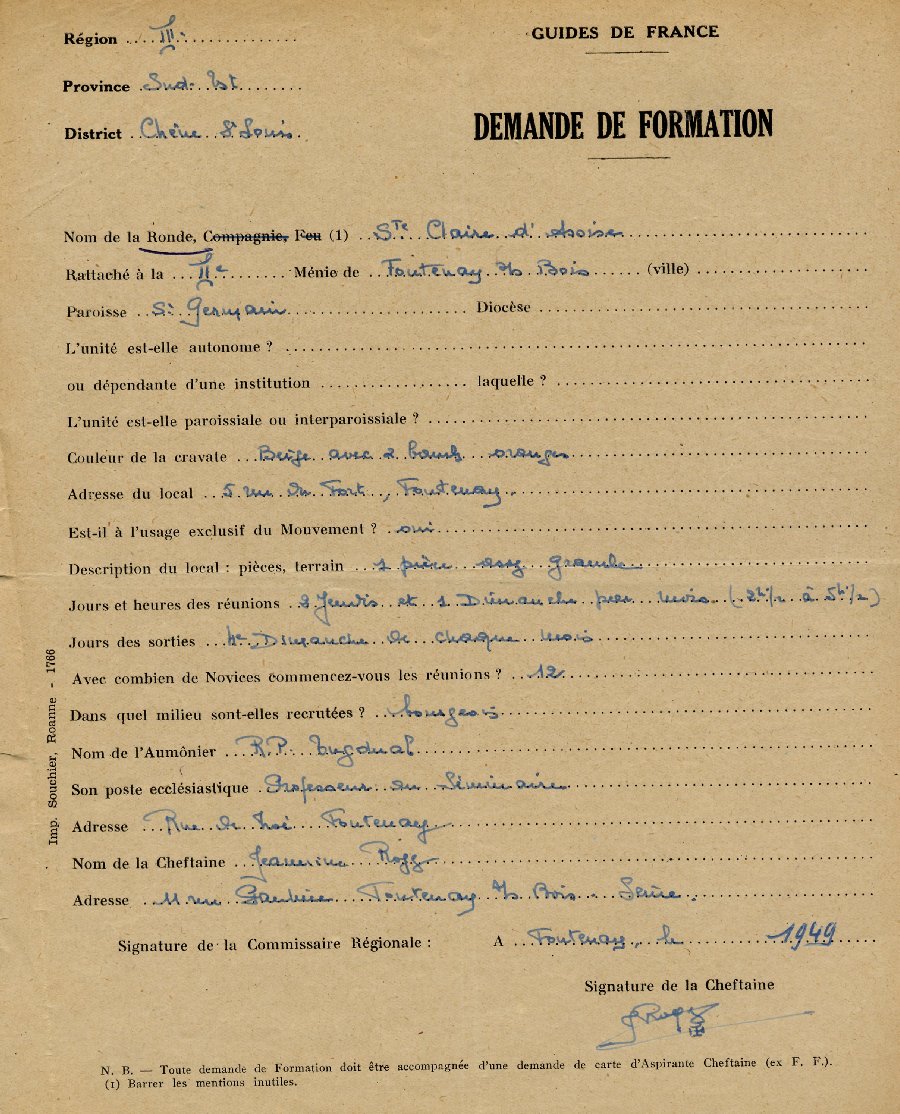 Région III.
GUIDES DE FRANCE
Province Sud-Est
DEMANDE DE FORMATION
District Chêne St Louis
Nom de la Ronde, Compagnie, Feu (1) Ste Claire d'Assise
Rattaché à la IIe Ménie de Fontenay s/s Bois (ville)
Paroisse St Germain Diocèse
L'unité est-elle autonome ?
ou dépendante d'une institution laquelle ?
L'unité est-elle paroissiale ou interparoissiale ?
Couleur de la cravate Beige avec 2 bandes oranges
Adresse du local 5 rue du Fort, Fontenay
Est-il à l'usage exclusif du Mouvement ? oui
Description du local : pièces, terrain 1 pièce assez grande
Jours et heures des réunions 2 Jeudis et 1 Dimanche par mois (2h1/2 à 5h1/2)
Jours des sorties 4e Dimanche de chaque mois
Avec combien de Novices commencez-vous les réunions ? 12
Dans quel milieu sont-elles recrutées ? bourgeois
Nom de l'Aumônier R.P. Tugdual
Son poste ecclésiastique Professeur au Séminaire
Adresse Rue de Fontenay
Nom de la Cheftaine Jeannine
Adresse 11 rue Fontenay s/s Bois Seine.
Signature de la Commissaire Régionale : A Fontenay, le 1949
Signature de la Cheftaine
N. B. — Toute demande de Formation doit être accompagnée d'une demande de carte d'Aspirante Cheftaine (ex F. F.).
(1) Barrer les mentions inutiles.
Imp. Souchier, Roanne - 1766